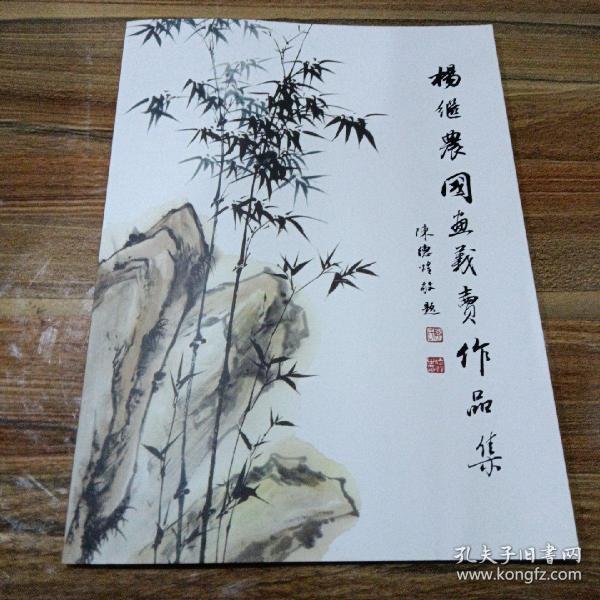 楊繼農國畫義賣作品集
陳德煌敬題
孔夫子旧書网
www.kongfz.com